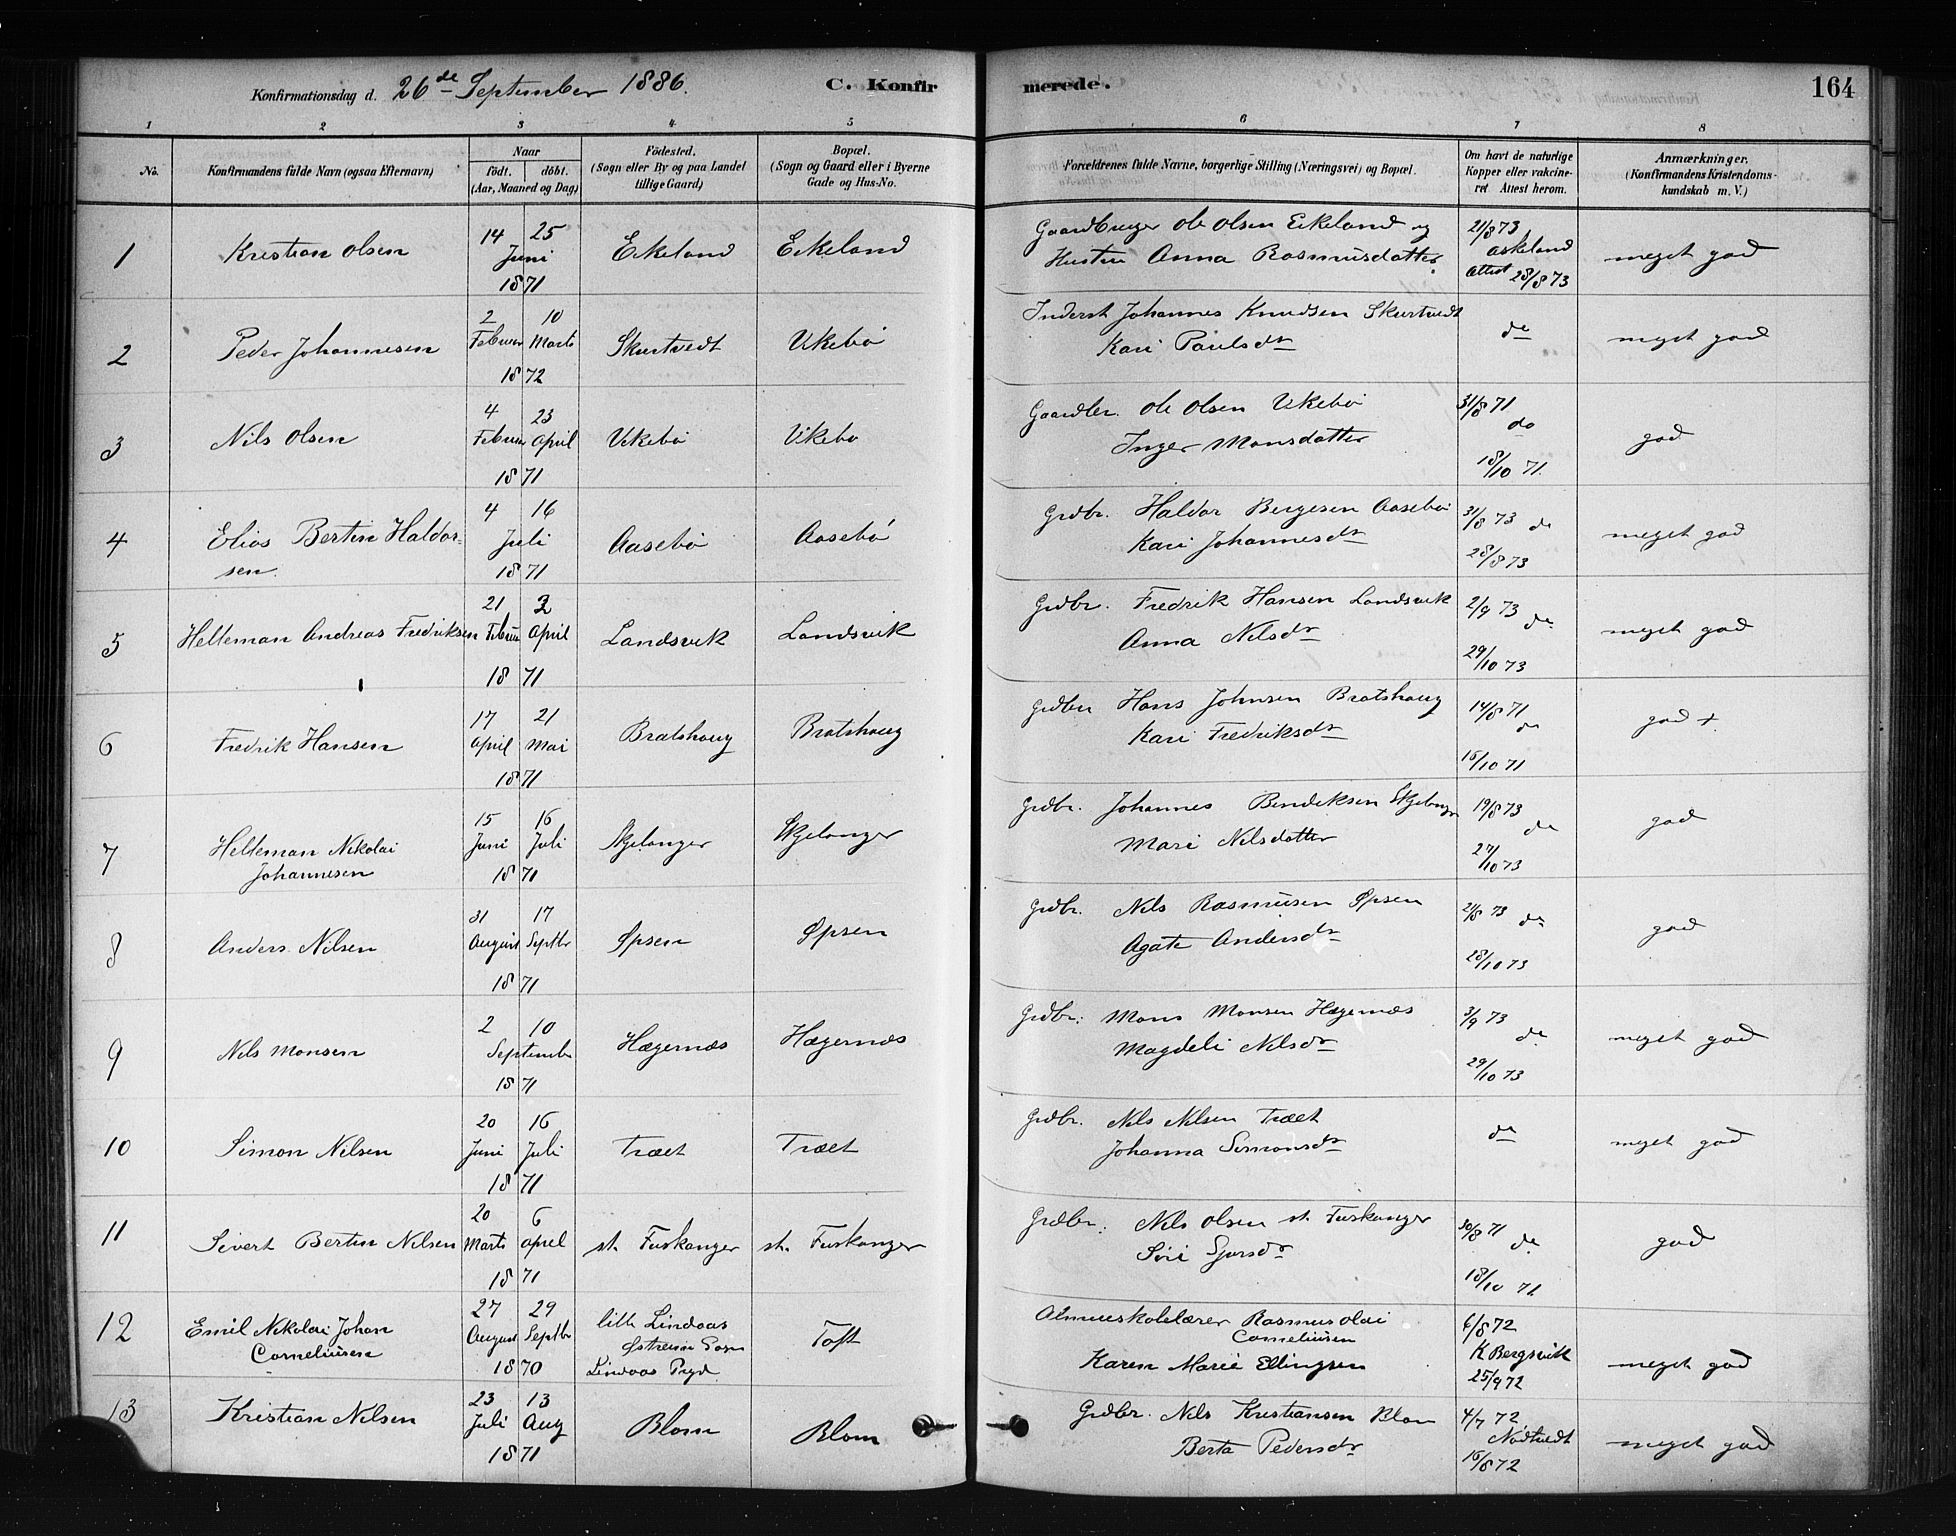 Konfirmationsdag d. 26de September 1886. C. Konfirmerede. 164
1 2 3 4 5 6 7 8
No. Konfirmandens fulde Navn (ogsaa Efternavn) Naar født. døbt. (Aar, Maaned og Dag) Fødested. (Sogn eller By og paa Landet tillige Gaard) Bopæl. (Sogn og Gaard eller i Byerne Gade og Hus-No. Forældrenes fulde Navne, borgerlige Stilling (Næringsvei) og Bopæl. Om havt de naturlige Kopper eller vakcineret Attest herom. Anmærkninger. (Konfirmandens Kristendomskundskab m. V.)
1 Kristian Olsen 14 25 Juni 1871 Eikeland Eikeland Gaardbruger Ole Olsen Eikeland og
Hustru Anna Rasmusdatter 21/8 73 Askeland Attest 28/8 73 meget god
2 Peder Johannesen 2 Februar 10 Marts 1872 Skurtvedt Vikebø Inderst Johannes Knudsen Skurtvedt
Kari Paulsdr do meget god
3 Nils Olsen 4 Februar 23 April 1871 Vikebø Vikebø Gaardbr. Ole Olsen Vikebø
Inger Monsdatter 31/8 71 do 18/10 71. god
4 Elias Bertin Haldorsen. 4 16 Juli 1871 Aasebø Aasebø Grdbr. Haldor Bergesen Aasebø
Kari Johannesdr 31/8 73 do 28/8 73 meget god
5 Helleman Andreas Fredriksen 21 Februar 2 April 1871 Landsvik Landsvik Grdbr. Fredrik Hansen Landsvik
Anna Nilsdr 2/9 73 do 29/10 73 meget god
6 Fredrik Hansen 17 April 21 Mai 1871 Bratshaug Bratshaug Grdbr Hans Johnsen Bratshaug
Kari Fredriksdr 14/8 71 do 15/10 71 god +
7 Helleman Nikolai
Johannesen 15 Juni 16 Juli 1871 Skjelanger Skjelanger Grdbr. Johannes Bendiksen Skjelanger
Mari Nilsdatter 19/8 73 do 27/10 73 god
8 Anders Nilsen 31 August 17 Septbr 1871 Øpsen Øpsen Grdbr. Nils Rasmusen Øpsen
Agate Andersdr 21/8 73 do 28/10 73 god
9 Nils Monsen 2 10 September 1871 Hægernæs Hægernæs Grdbr: Mons Monsen Hægernæs
Magdeli Nilsdr 3/9 73 do 29/10 73 meget god
10 Simon Nilsen 20 Juni 16 Juli 1871 Træet Træet Grdbr. Nils Nilsen Træet
Johanna Simonsdr do meget god
11 Sivert Bertin Nilsen 20 Marts 6 April 1871 st. Fuskanger st. Fuskanger Grdbr. Nils Olsen st. Fuskanger
Siri Sjursdr 30/8 71 do 18/10 71. god
12 Emil Nikolai Johan
Corneliusen 27 August 29 Septbr 1870 lille Lindaas
Østreim Sogn
Lindaas Prgd. Toft Almueskolelærer Rasmus Olai
Corneliusen
Karen Marie Ellingsen 6/8 72 K Bergsvik 25/9 72 meget god
13 Kristian Nilsen 23 Juli 13 Aug 1871 Blom Blom Grdbr. Nils Kristiansen Blom
Berta Pedersdr 4/7 72 Nødtvedt 15/8 72 meget god